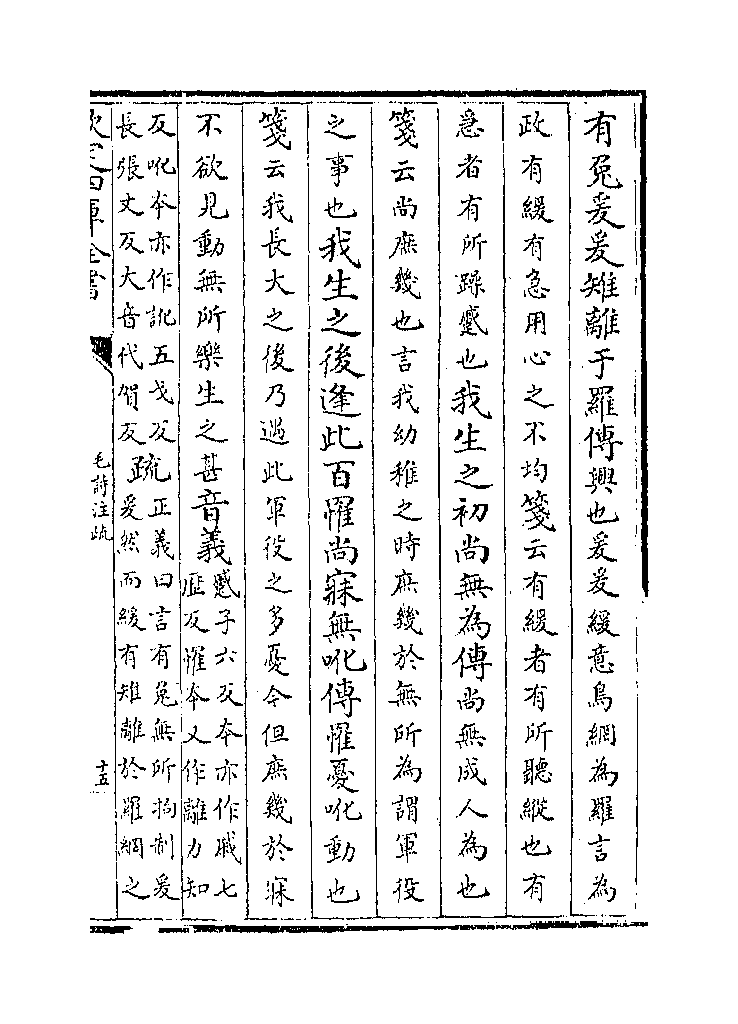 有兔爰爰雉離于羅傳興也爰爰緩意鳥網為羅言為
政有緩有急用心之不均箋云有緩者有所聽縱也有
急者有所躁蹙也我生之初尚無為傳尚無成人為也
箋云尚庶幾也言我幼稚之時庶幾於無所為謂軍役
之事也我生之後逢此百罹尚寐無吪傳罹憂吪動也
箋云我長大之後乃遇此軍役之多憂今但庶幾於寐
不欲見動無所樂生之甚音義蹙子六反本亦作戚七
歴反罹本又作離力知
反吪本亦作訛五戈反
長張丈反大音代賀反疏正義曰言有兔無所拘制爰
爰然而緩有雉離於羅網之
欽定四庫全書
毛詩注疏
十五